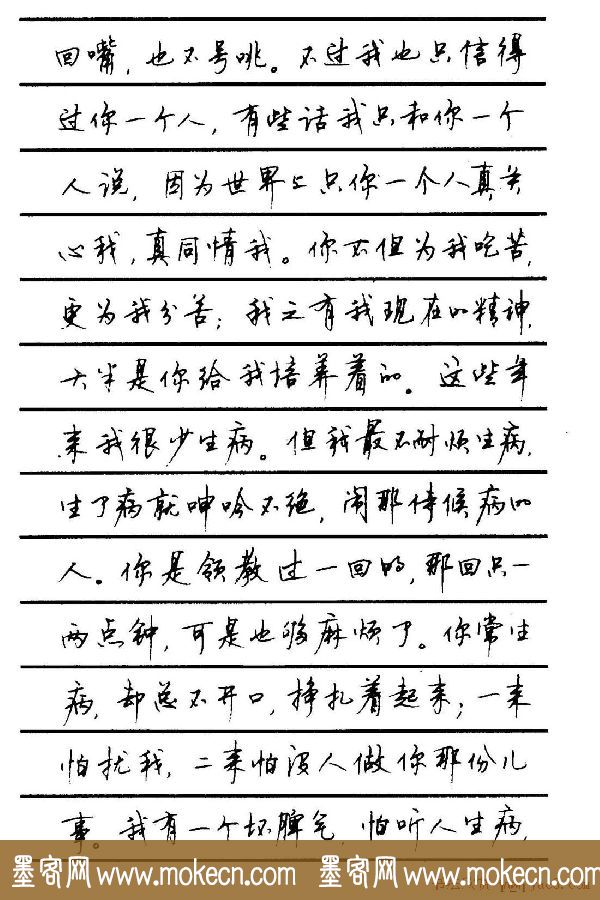 回嘴，也不号咷。不过我也只信得
过你一个人，有些话我只和你一个
人说，因为世界上只你一个人真关
心我，真同情我。你不但为我吃苦，
更为我分苦；我之有我现在的精神，
大半是你给我培养着的。这些年
来我很少生病。但我最不耐烦生病，
生了病就呻吟不绝，闹那侍候病的
人。你是领教过一回的，那回只一
两点钟，可是也够麻烦了。你常生
病，却总不开口，挣扎着起来；一来
怕扰我，二来怕没人做你那份儿
事。我有一个坏脾气，怕听人生病，
墨客网 www.mokecn.com 墨客网 www.mokecn.com